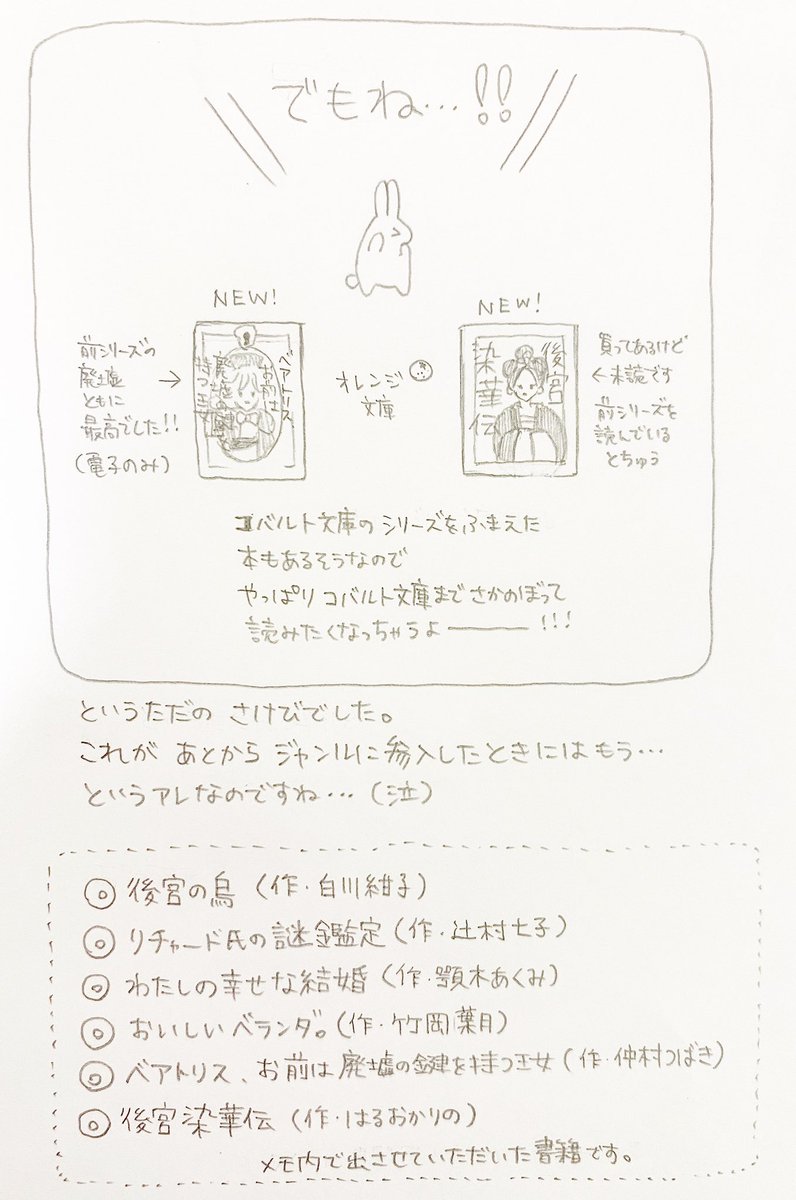 でもね…!!
NEW!
前シリーズの
廃墟
ともに
最高でした!!
(電子のみ)
→
ベアトリス、
お前は
廃墟の鍵を
持つ王女
オレンジ
文庫
NEW!
後宮
染華伝
買ってあるけど
←未読です
前シリーズを
読んでいる
とちゅう
コバルト文庫のシリーズをふまえた
本もあるそうなので
やっぱりコバルト文庫までさかのぼって
読みたくなっちゃうよ――!!!
というただの さけびでした。
これが あとから ジャンルに参入したときにはもう…
というアレなのですね…(泣)
◎後宮の烏(作・白川紺子)
◎リチャード氏の謎鑑定(作・辻村七子)
◎わたしの幸せな結婚(作・顎木あくみ)
◎おいしいベランダ。(作・竹岡葉月)
◎ベアトリス、お前は廃墟の鍵を持つ王女(作・仲村つばき)
◎後宮染華伝(作・はるおかりの)
メモ内で出させていただいた書籍です。